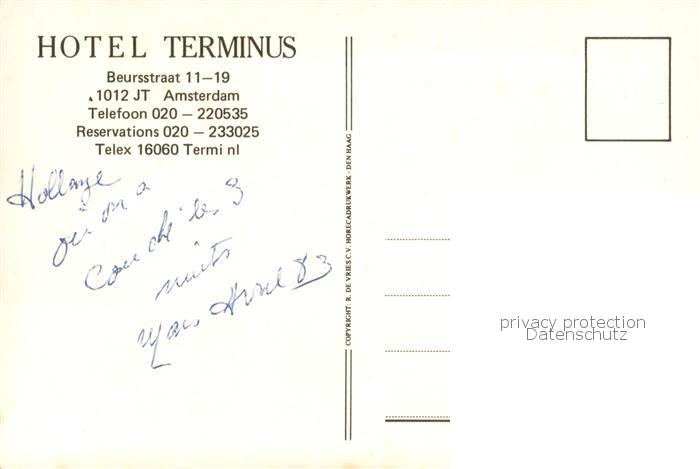 HOTEL TERMINUS
Beursstraat 11–19
1012 JT Amsterdam
Telefoon 020 – 220535
Reservations 020 – 233025
Telex 16060 Termi nl
où on a
couché les 3
nuits
Avril 83
COPYRIGHT: R. DE VRIES C.V. HORECADRUKWERK - DEN HAAG
privacy protection
Datenschutz